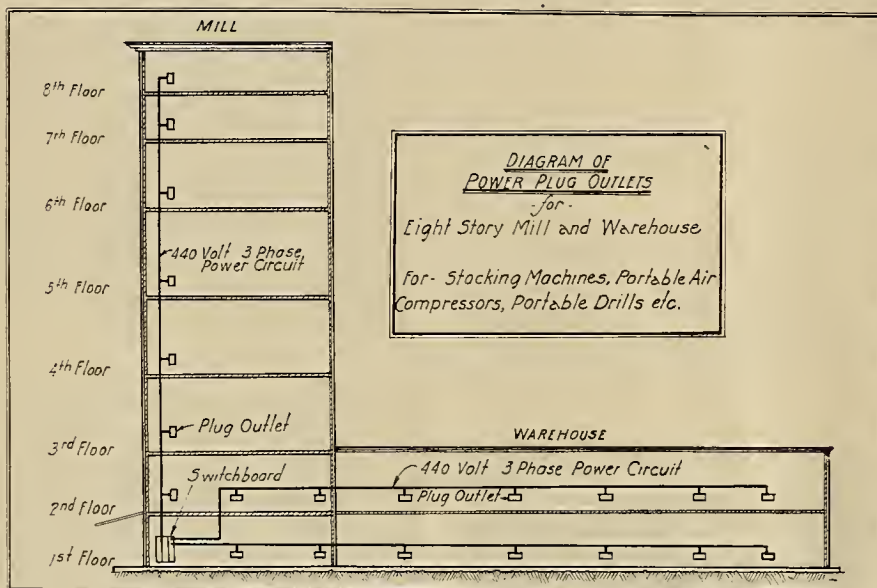 MILL
8th Floor
7th Floor
6th Floor
5th Floor
4th Floor
3rd Floor
2nd Floor
1st Floor
440 Volt 3 Phase,
Power Circuit
Plug Outlet
Switchboard
DIAGRAM OF
POWER PLUG OUTLETS
-for-
Eight Story Mill and Warehouse
For- Stacking Machines, Portable Air
Compressors, Portable Drills etc.
WAREHOUSE
440 Volt 3 Phase Power Circuit
Plug Outlet